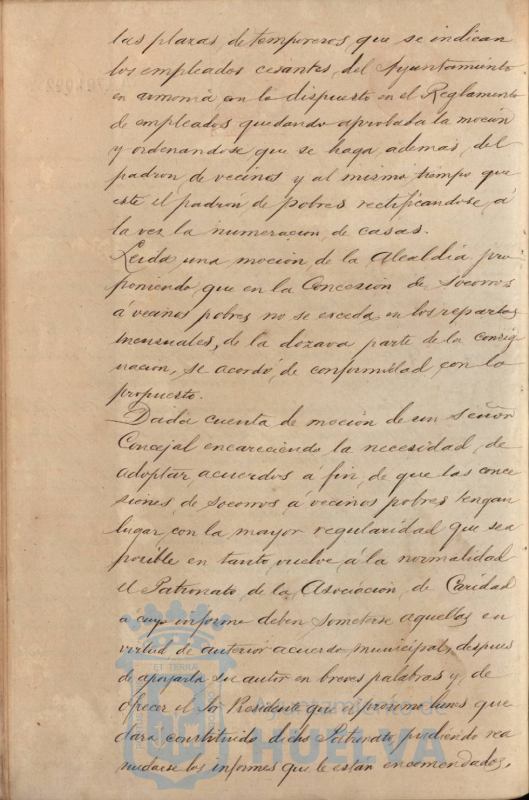 las plazas, de temporeros, que se indican
los empleados cesantes, del Ayuntamiento
en armonia con lo dispuesto en el Reglamento
de empleados quedando aprobaba la moción
y ordenandose que se haga, ademas, del
padron, de vecinos y al mismo tiempo que
este el padrón de pobres rectificandose á
la vez la numeracion de casas.
Leida, una moción de la Alcaldia pro
poniendo, que en la Concesion de Socorros
á vecinos pobres no se exceda en los repartos
mensuales, de la dozava parte de la consig
nacion, se acordó, de conformidad con lo
propuesto.
Dada cuenta de moción de un Señor
Concejal encareciendo la necesidad, de
adoptar, acuerdos á fin, de que las conce
siones, de socorros a vecinos pobres tengan
lugar, con la mayor regularidad que sea
posible en tanto, vuelve á la normalidad
el Patronato, de la Asociación, de Caridad
a cuyo informe deben someterse aquellas en
virtud de anterior acuerdo municipal, despues
de apoyarla su autor en breves palabras y, de
ofrecer el Sor Presidente que el próximo lunes que
dara constituido dicho Patronato pudiendo rea
nudarse los informes que le estan encomendados,
ET TERRÆ
Ayuntamiento de
HUELVA